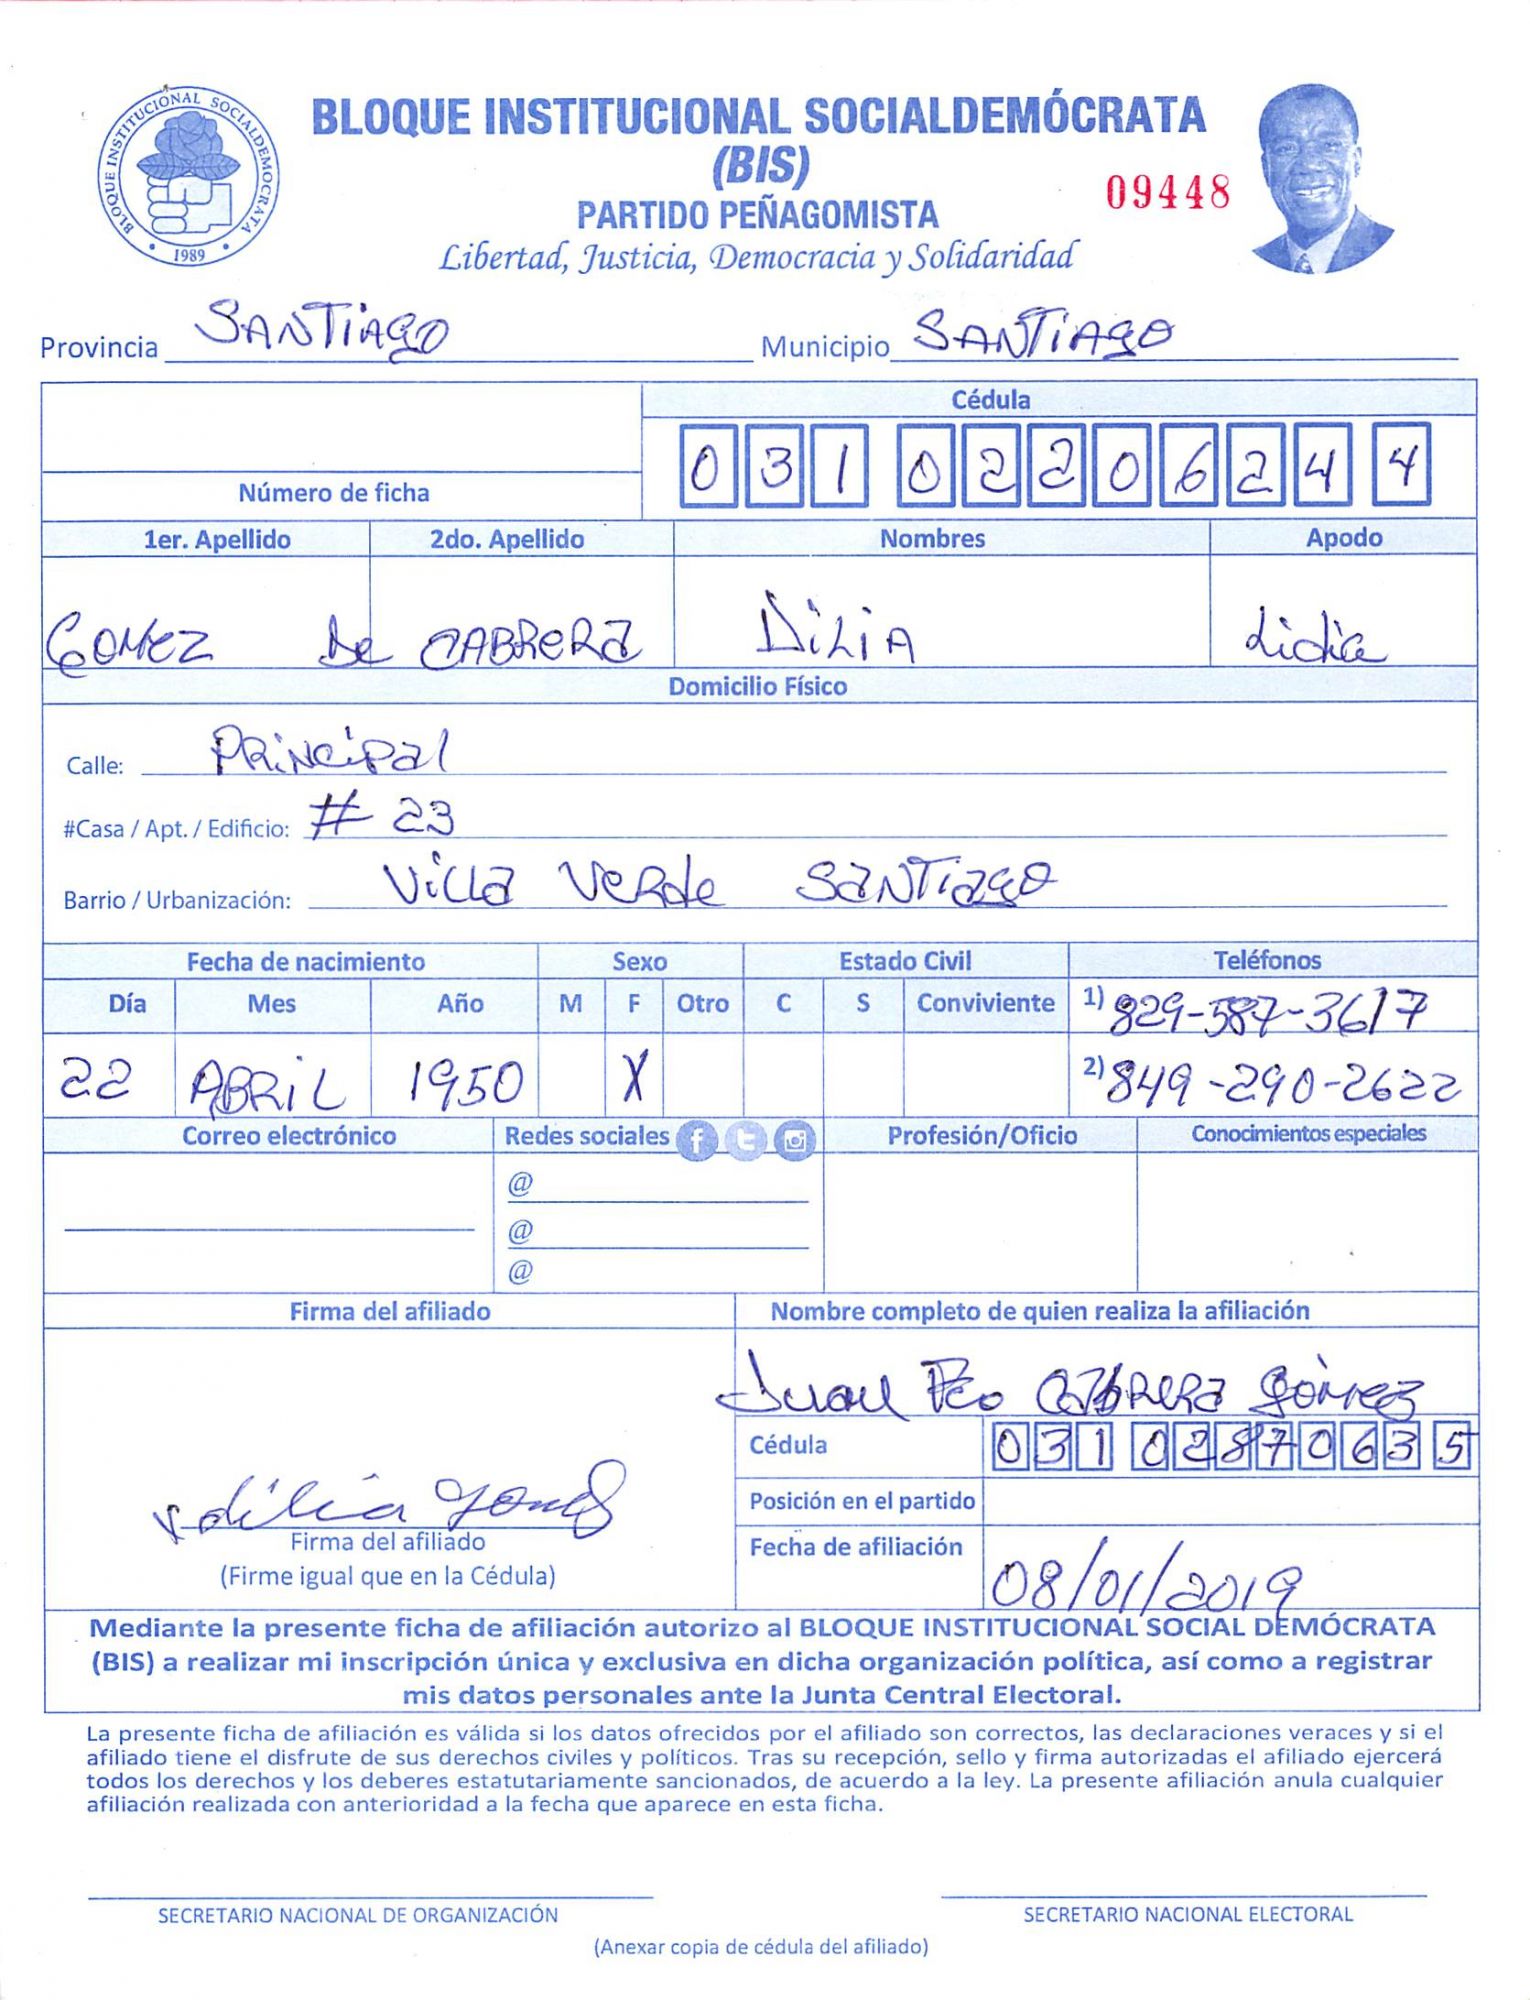 BLOQUE INSTITUCIONAL SOCIALDEMOCRATA
1989
BLOQUE INSTITUCIONAL SOCIALDEMÓCRATA
(BIS)
PARTIDO PEÑAGOMISTA
09448
Libertad, Justicia, Democracia y Solidaridad
Provincia SANTiAGO Municipio SANTiAGO
Cédula
0 3 1 0 2 2 0 6 2 4 4
Número de ficha
1er. Apellido 2do. Apellido Nombres Apodo
GOMEZ De CABReRa DiLiA Lidia
Domicilio Físico
Calle: PRiNcipal
#Casa / Apt. / Edificio: # 23
Barrio / Urbanización: Villa VeRde SaNTiago
Fecha de nacimiento Sexo Estado Civil Teléfonos
Día Mes Año M F Otro C S Conviviente 1) 829-587-3617
22 ABRiL 1950 X 2) 849-290-2622
Correo electrónico Redes sociales Profesión/Oficio Conocimientos especiales
@
@
@
Firma del afiliado Nombre completo de quien realiza la afiliación
Juan Fco CABReRa Gómez
Cédula 0 3 1 0 2 8 7 0 6 3 5
Posición en el partido
dilia gomez
Firma del afiliado
(Firme igual que en la Cédula)
Fecha de afiliación 08/01/2019
Mediante la presente ficha de afiliación autorizo al BLOQUE INSTITUCIONAL SOCIAL DEMÓCRATA
(BIS) a realizar mi inscripción única y exclusiva en dicha organización política, así como a registrar
mis datos personales ante la Junta Central Electoral.
La presente ficha de afiliación es válida si los datos ofrecidos por el afiliado son correctos, las declaraciones veraces y si el
afiliado tiene el disfrute de sus derechos civiles y políticos. Tras su recepción, sello y firma autorizadas el afiliado ejercerá
todos los derechos y los deberes estatutariamente sancionados, de acuerdo a la ley. La presente afiliación anula cualquier
afiliación realizada con anterioridad a la fecha que aparece en esta ficha.
SECRETARIO NACIONAL DE ORGANIZACIÓN SECRETARIO NACIONAL ELECTORAL
(Anexar copia de cédula del afiliado)